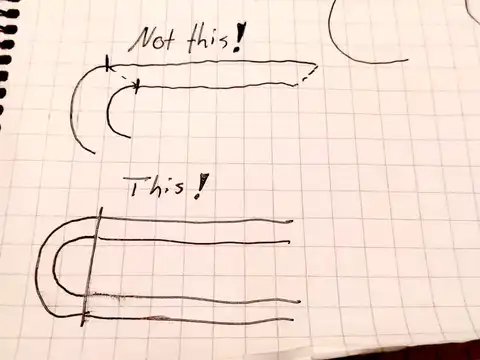 Not this!
This!